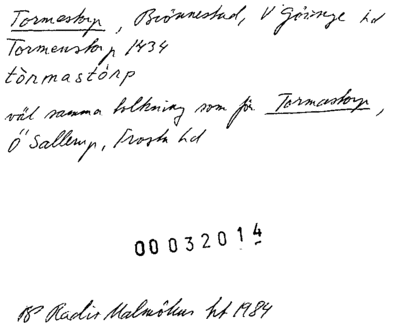 Tormastorp, Brönnestad, V Göinge hd
Tormenstorp 1434
tòrmastòrp
väl samma tolkning som för Tormastorp,
Ö Sallerup, Frosta hd
00032014
Radio Malmöhus ht 1984